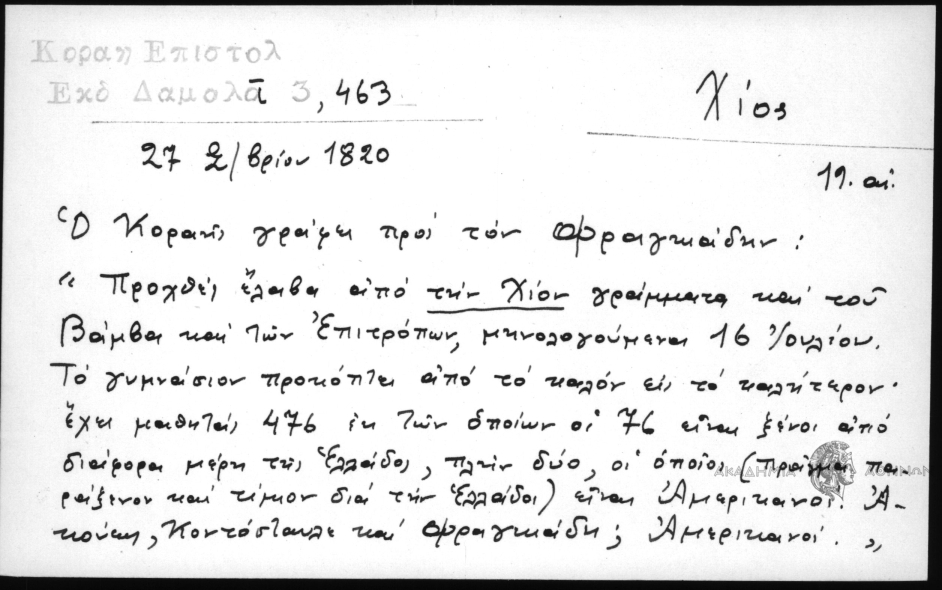 Κοραη Επιστολ
Εκδ Δαμολᾶ 3, 463
Χίος
27 Σ/βρίου 1820
19. αἰ.
Ὁ Κοραῆς γράφει πρὸς τὸν Φραγκιάδην:
« Προχθὲς ἔλαβα ἀπό τὴν Χίον γράμματα καὶ τοῦ
Βάμβα καὶ τῶν Ἐπιτρόπων, μηνολογούμενα 16 Ἰουλίου.
Τό γυμνάσιον προκόπτει ἀπό τὸ καλόν εἰς τὸ καλήτερον·
ἔχει μαθητάς 476 ἐκ τῶν ὁποίων οἱ 76 εἶναι ξένοι ἀπό
διάφορα μέρη τῆς Ἑλλάδος, πλὴν δύο, οἱ ὁποῖοι (πρᾶγμα πα
ράξενον καὶ τίμιον διά τὴν Ἑλλάδα) εἶναι Ἀμερικανοί. Ἀ-
κούεις, Κοντόσταυλε καὶ Φραγκιάδη; Ἀμερικανοί. »
ΑΚΑΔΗΜΙΑ ΑΘΗΝΩΝ